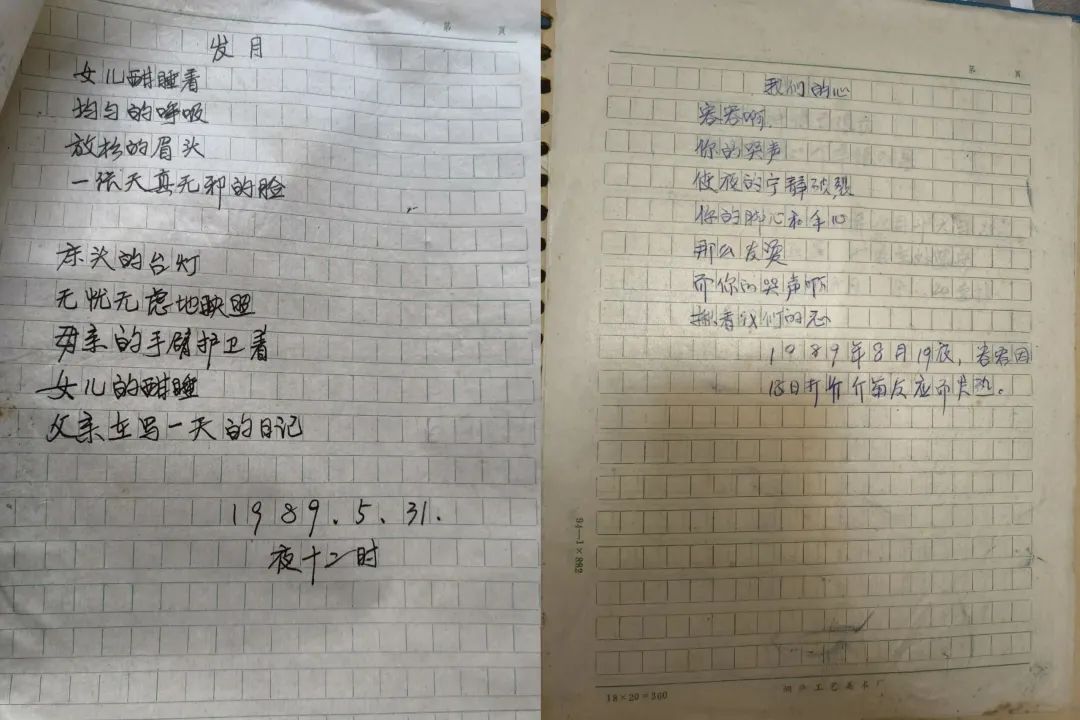 第 页
发月
女儿酣睡着
均匀的呼吸
放松的眉头
一张天真无邪的脸
床头的台灯
无忧无虑地映照
母亲的手臂护卫着
女儿的酣睡
父亲在写一天的日记
1989.5.31.
夜十二时
第 页
我们的心
君君啊
你的哭声
使夜的宁静破裂
你的脚心和手心
那么发烫
而你的哭声啊
揪着我们的心
1989年8月19夜,君君因
18日打 反应而发热。
94—1×882
18×20=360
工艺美术厂